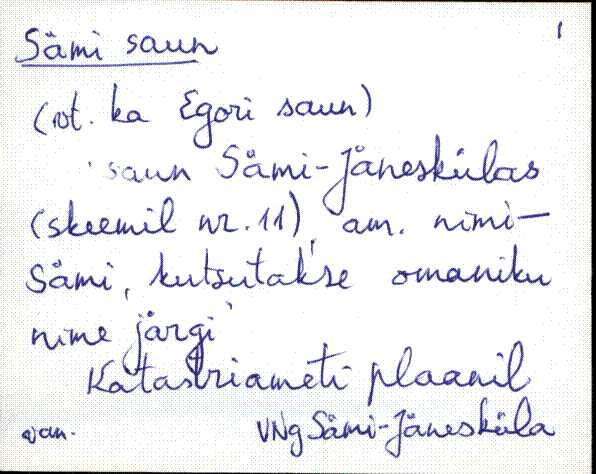 Sämi saun 1
(vt. ka Egori saun)
saun Sämi-Jänesküläs
(skeemil nr. 11), am. nimi -
Sämi, kutsutakse omaniku
nime järgi
Katastriameti plaanil
van. VNg Sämi-Jänesküla